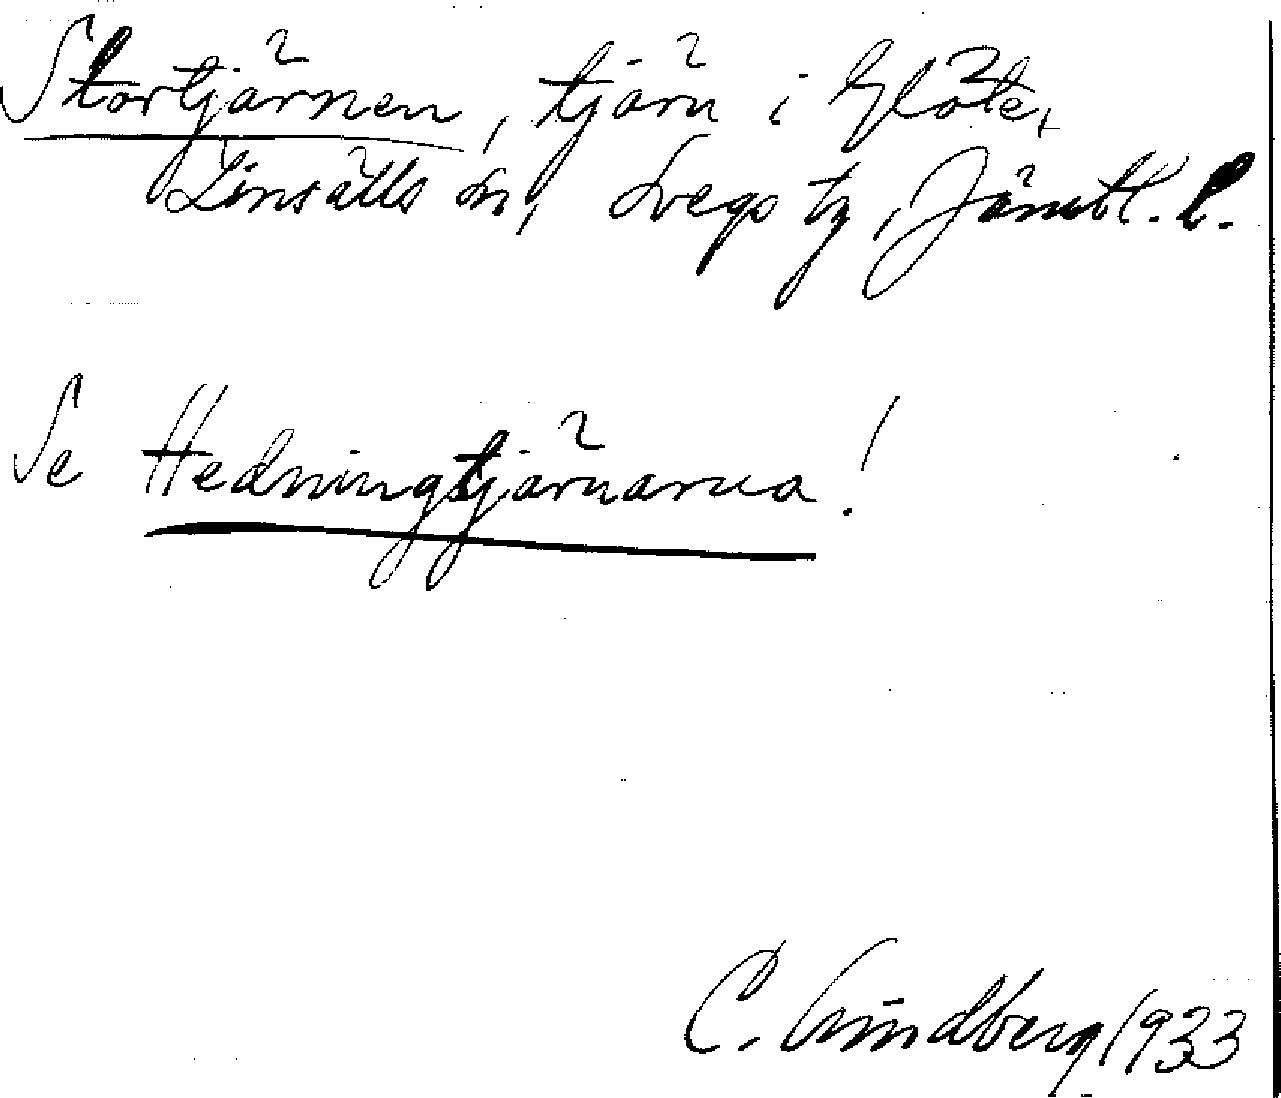 Stortjärnen, tjärn i Glöte,
Linsälls sn, Svegs tg, Jämtl. l.
Se Hedningtjärnarna!
C. Lundberg 1933